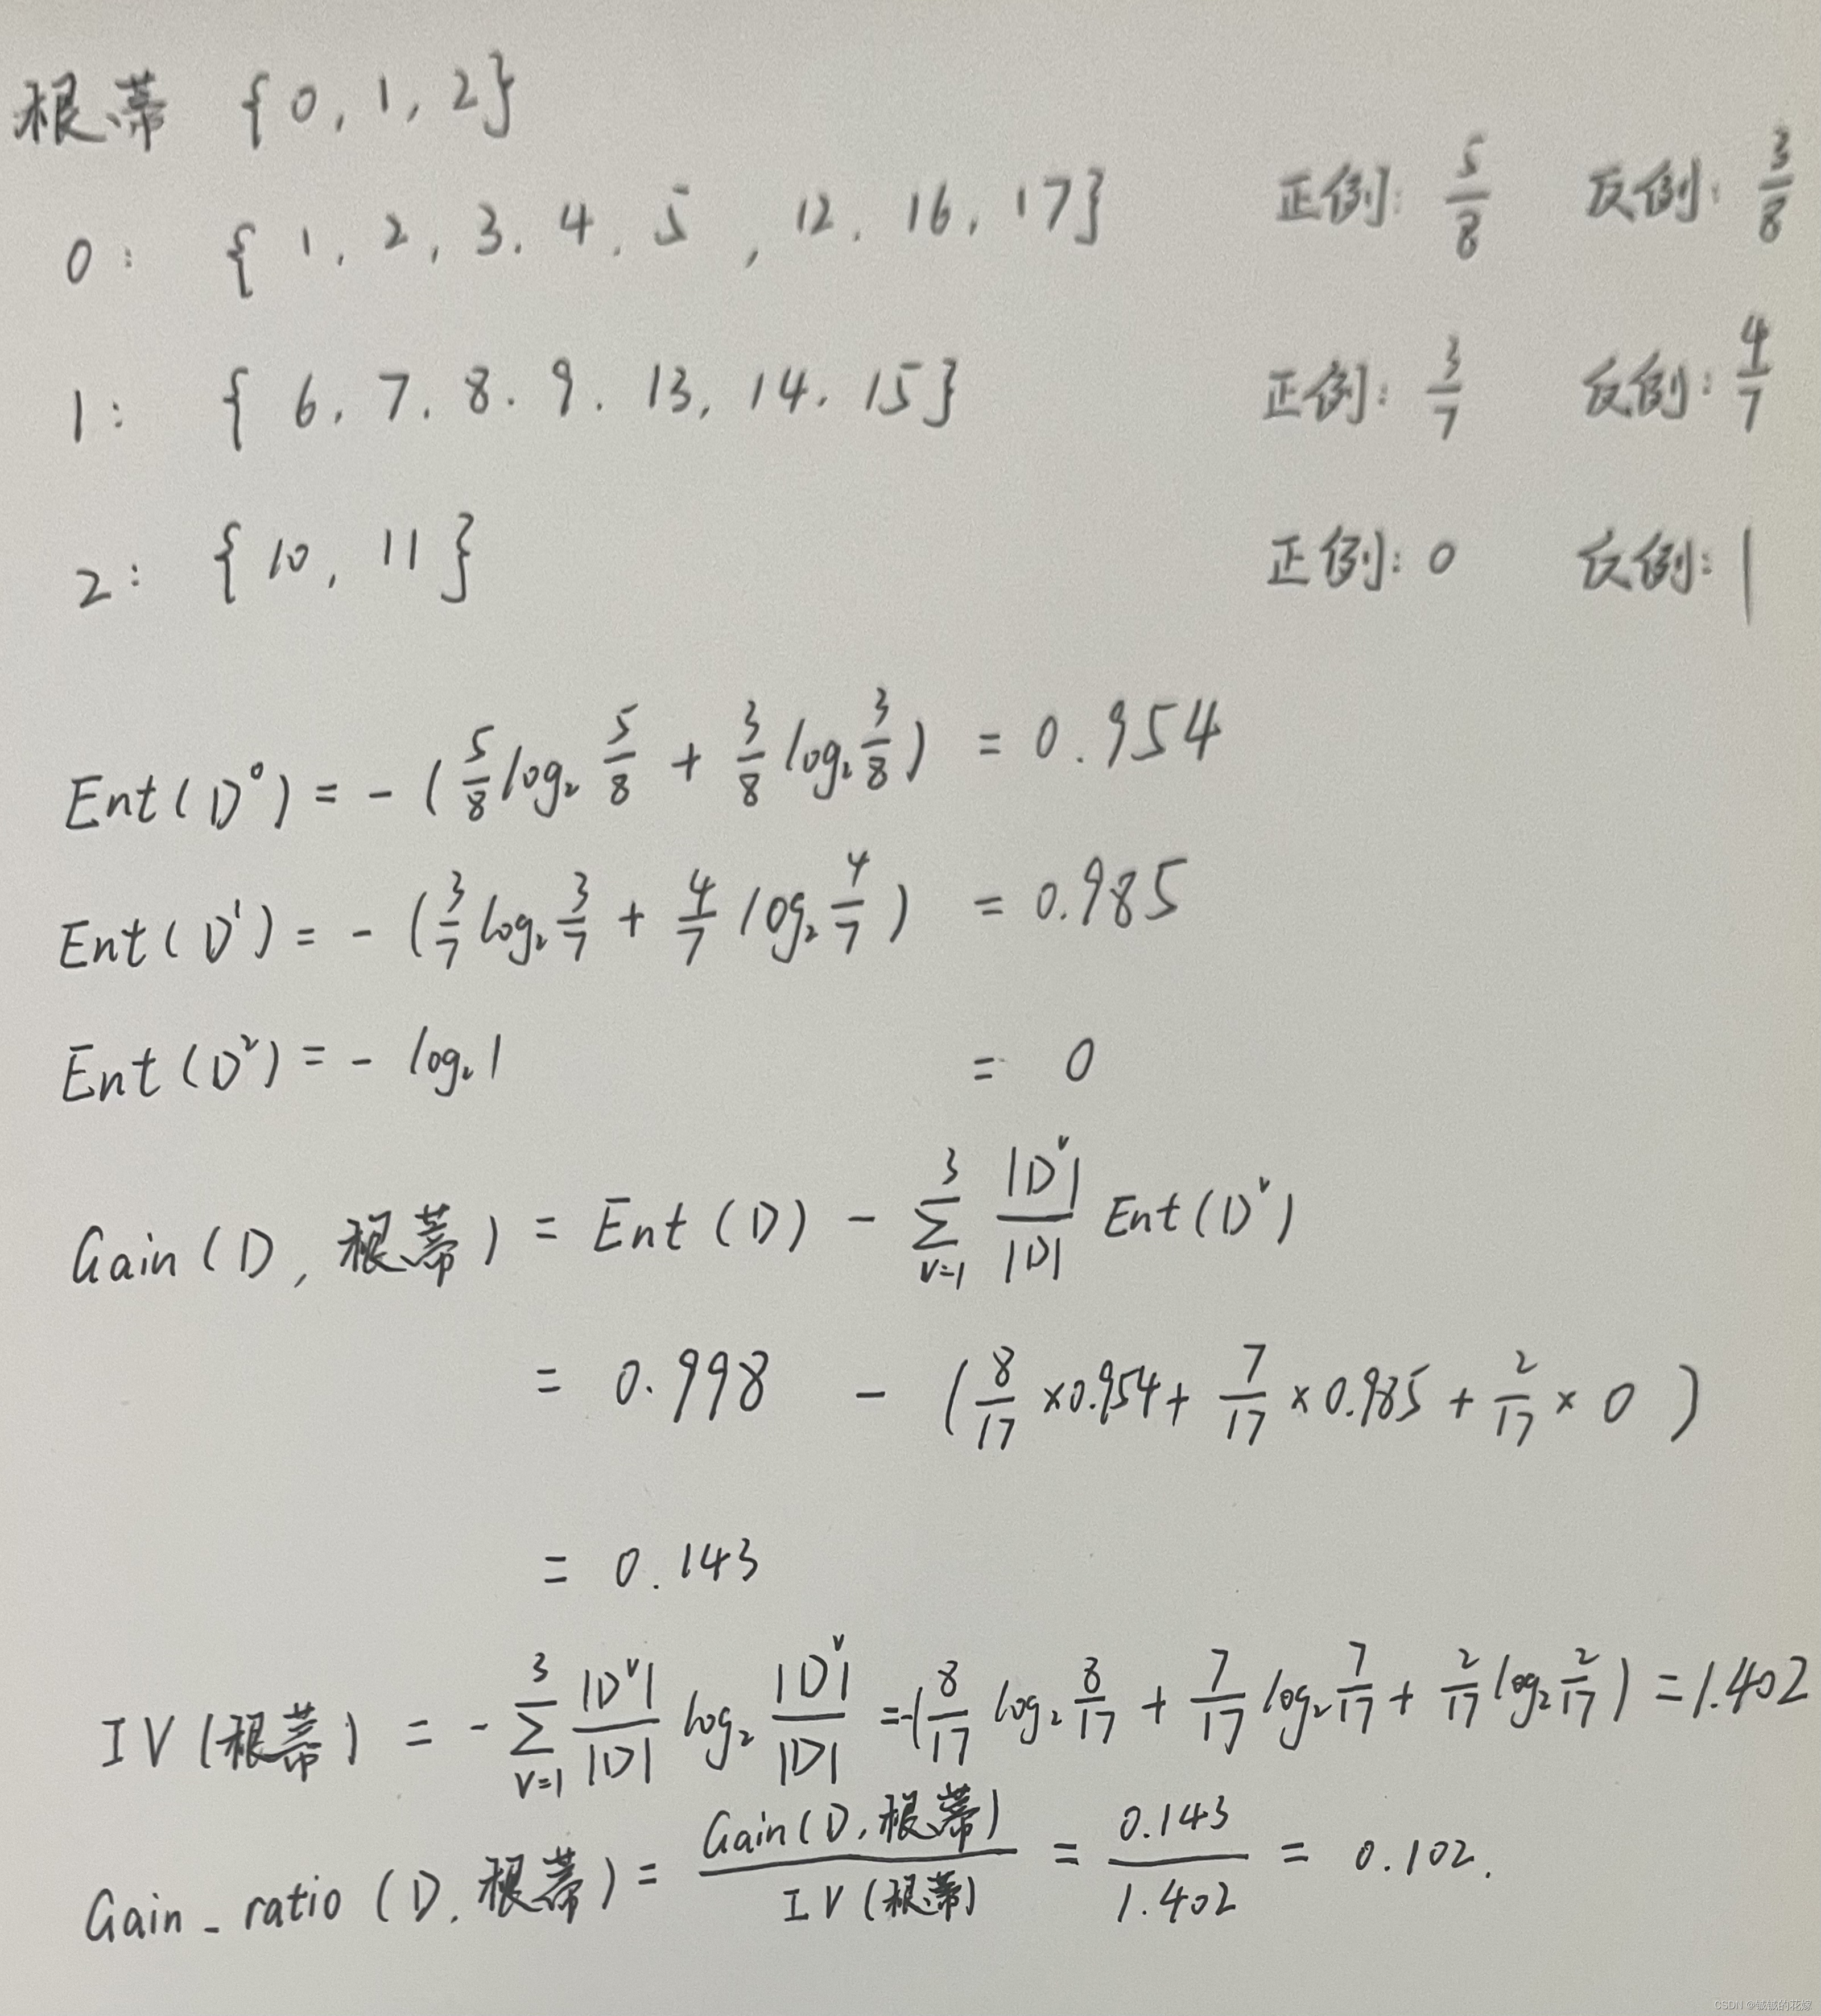 根蒂 {0, 1, 2}
0: { 1, 2, 3, 4, 5, 12, 16, 17} 正例: 5/8 反例: 3/8
1: { 6, 7, 8, 9, 13, 14, 15} 正例: 3/7 反例: 4/7
2: {10, 11} 正例: 0 反例: 1
Ent(D⁰) = - (5/8 log₂ 5/8 + 3/8 log₂ 3/8) = 0.954
Ent(D¹) = - (3/7 log₂ 3/7 + 4/7 log₂ 4/7) = 0.985
Ent(D²) = - log₂ 1 = 0
Gain(D, 根蒂) = Ent(D) - ∑_{v=1}^{3} |Dᵛ|/|D| Ent(Dᵛ)
= 0.998 - (8/17 × 0.954 + 7/17 × 0.985 + 2/17 × 0)
= 0.143
IV(根蒂) = - ∑_{v=1}^{3} |Dᵛ|/|D| log₂ |Dᵛ|/|D| = -(8/17 log₂ 8/17 + 7/17 log₂ 7/17 + 2/17 log₂ 2/17) = 1.402
Gain_ratio(D, 根蒂) = Gain(D, 根蒂)/IV(根蒂) = 0.143/1.402 = 0.102.